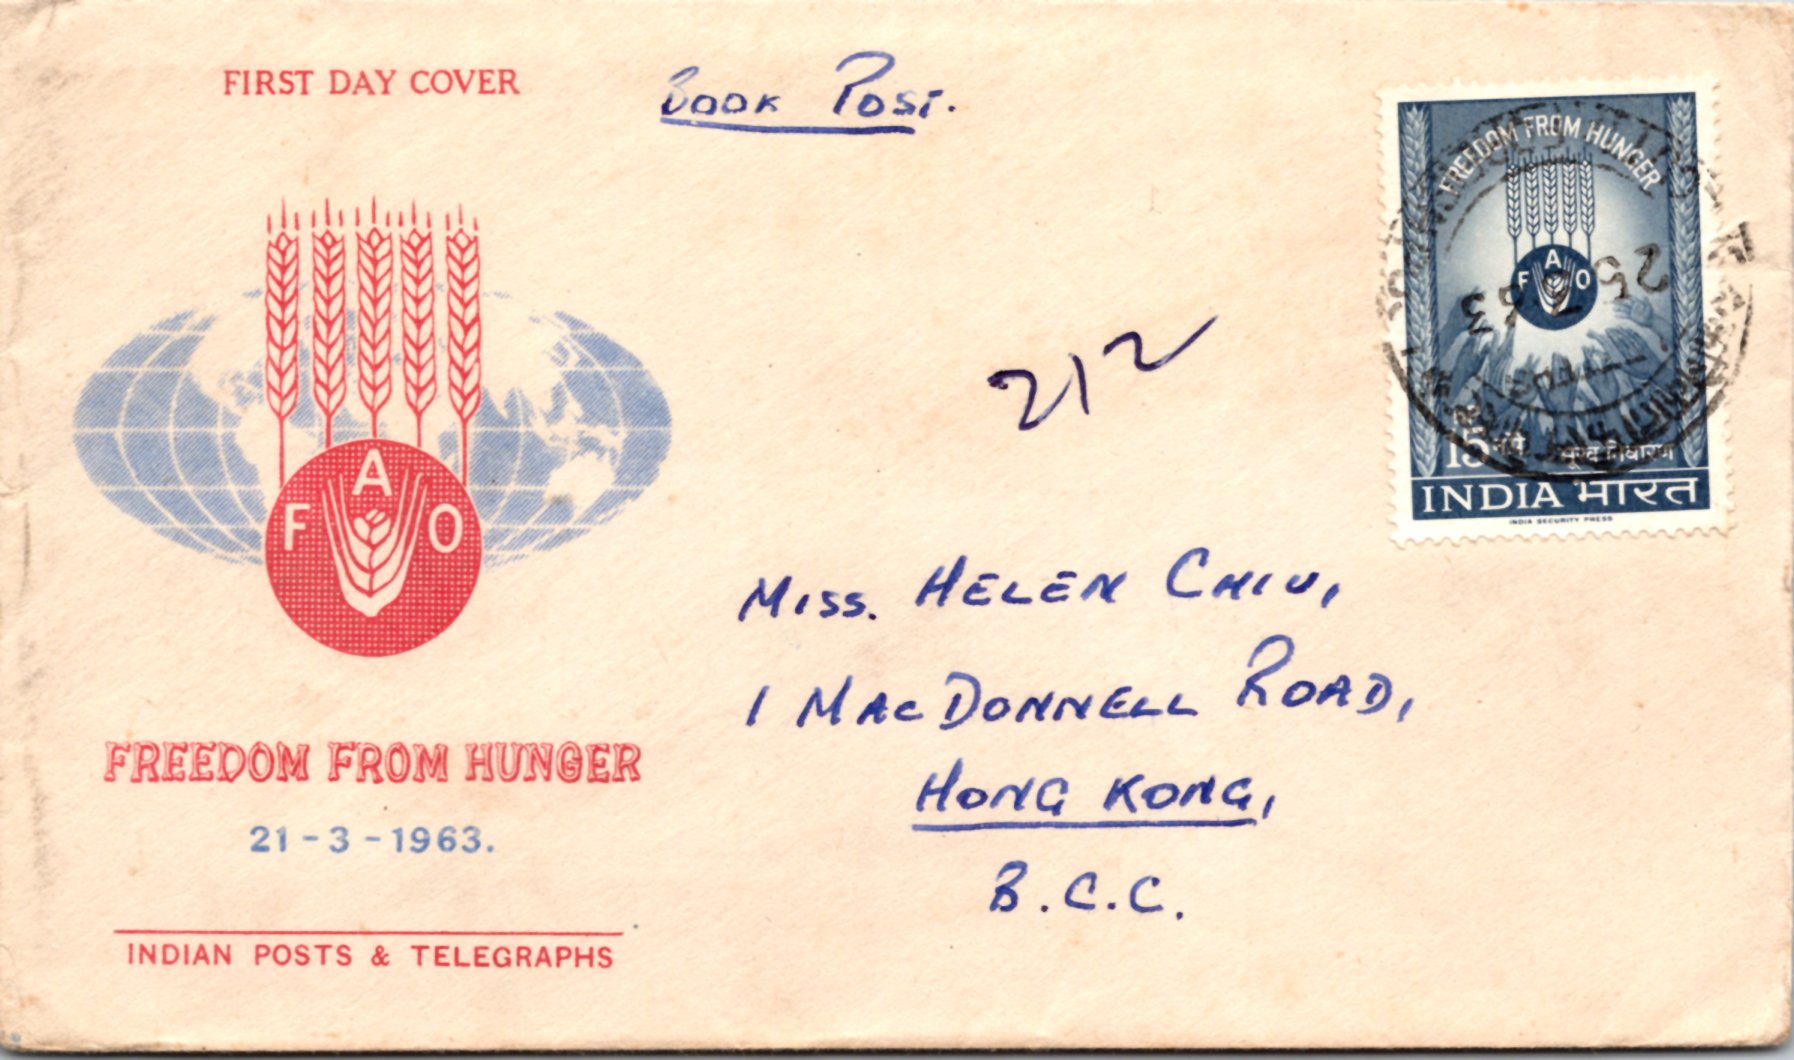 FIRST DAY COVER
Book Post.
FREEDOM FROM HUNGER
F A O
15
INDIA भारत
INDIA SECURITY PRESS
212
F A O
Miss. HELEN CHIU,
1 MACDONNELL ROAD,
HONG KONG,
B.C.C.
FREEDOM FROM HUNGER
21-3-1963.
INDIAN POSTS & TELEGRAPHS